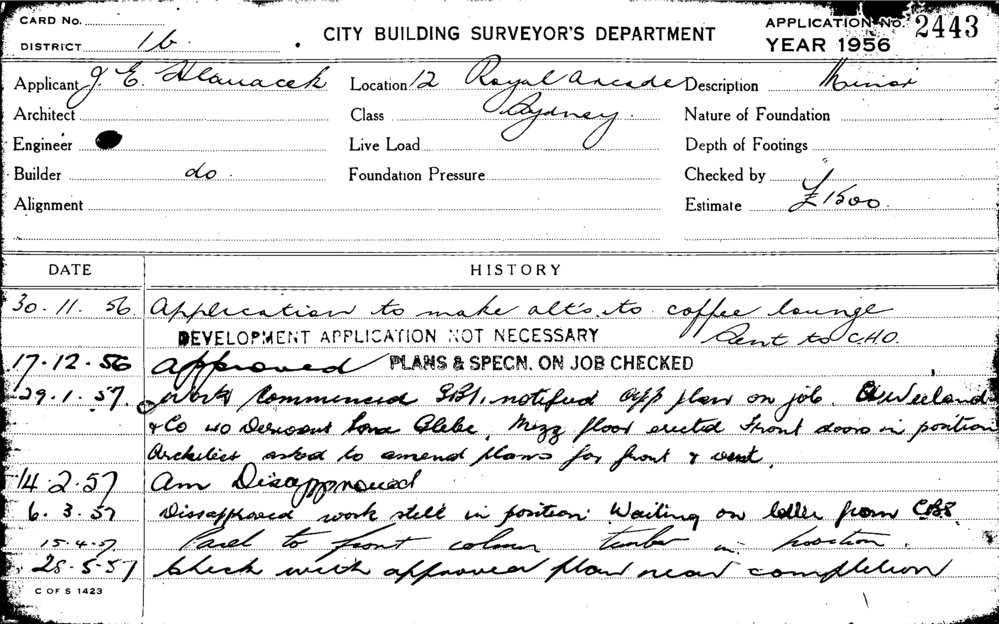 CARD No.
DISTRICT 1b.
CITY BUILDING SURVEYOR'S DEPARTMENT
APPLICATION No. 2443
YEAR 1956
Applicant J. E. Hlavacek Location 12 Royal Arcade Description Minor
Architect Class Sydney. Nature of Foundation
Engineer Live Load Depth of Footings
Builder do. Foundation Pressure Checked by
Alignment Estimate £1500
DATE HISTORY
30.11.56 Application to make alt's. to coffee lounge
DEVELOPMENT APPLICATION NOT NECESSARY Sent to C.H.O.
17.12.56 Approved PLANS & SPECN. ON JOB CHECKED
29.1.57. Work Commenced notified app plan on job.
& Co 40 Glebe. Mezz floor erected Front doors in position
Architect asked to amend plans for front & vent.
14.2.57 Am Disapproved
6.3.57 Dissapproved work still in position Waiting on letter from CBS.
15.4.57. to front column timber in position.
28.5.57 Check with approved plan near completion
C OF S 1423